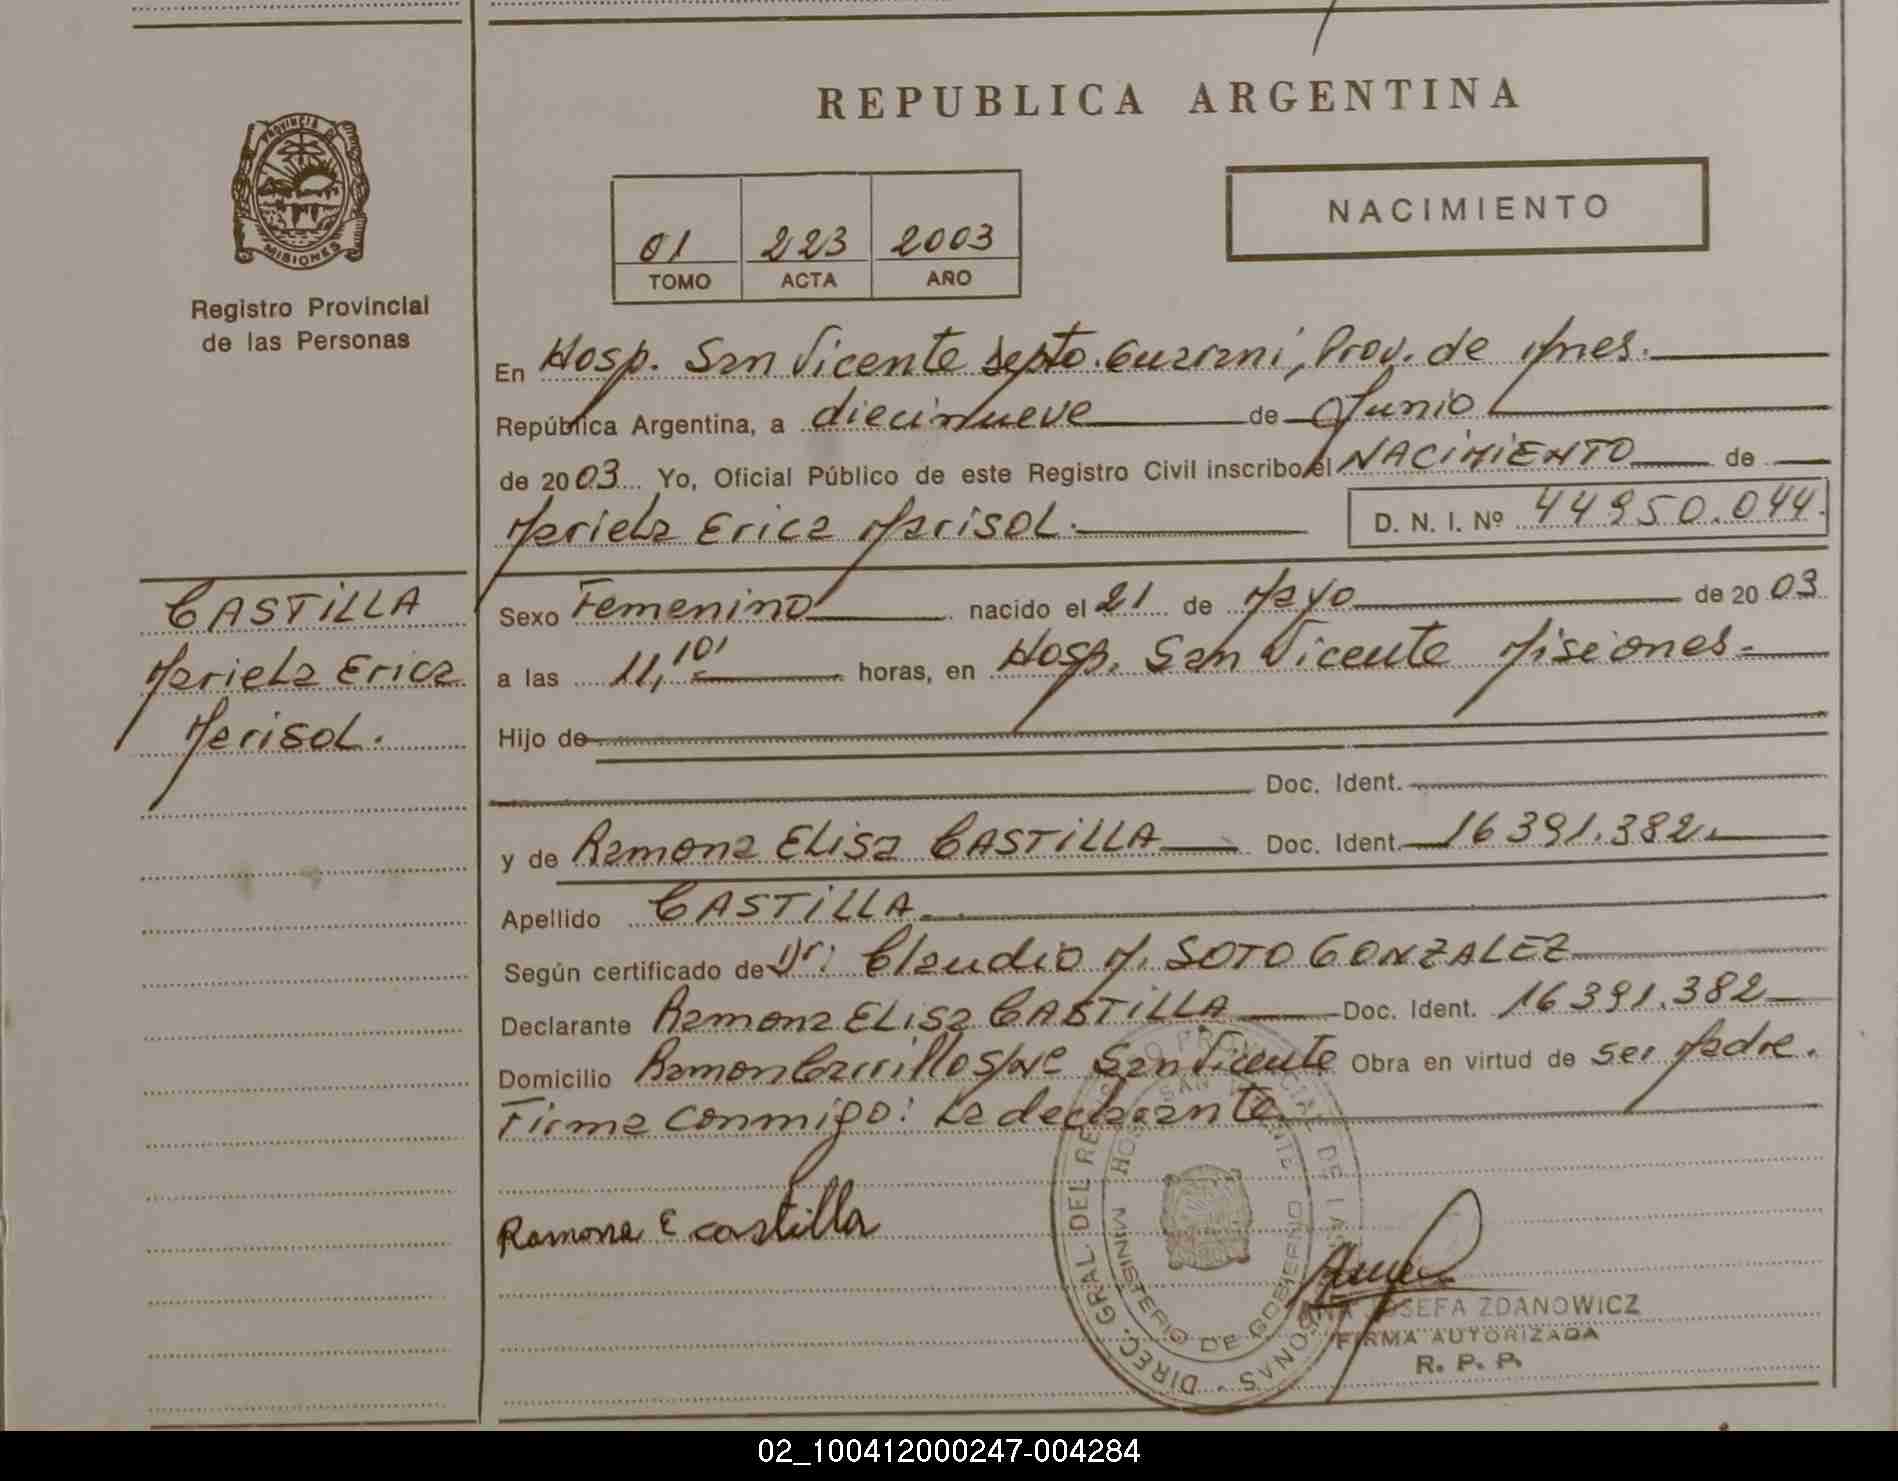 REPUBLICA ARGENTINA
PROVINCIA DE
MISIONES
Registro Provincial
de las Personas
01 223 2003
TOMO ACTA AÑO
NACIMIENTO
En Hosp. San Vicente Depto. Guarani, Prov. de Mnes.
República Argentina, a diecinueve de Junio
de 2003 Yo, Oficial Público de este Registro Civil inscribo el NACIMIENTO de
Mariela Erica Marisol.
D. N. I. Nº 44950.044.
CASTILLA
Mariela Erica
Marisol.
Sexo Femenino nacido el 21 de Mayo de 2003
a las 11,10' horas, en Hosp. San Vicente Misiones
Hijo de
Doc. Ident.
y de Ramona Elisa CASTILLA Doc. Ident. 16391.382.
Apellido CASTILLA
Según certificado de Dr: Claudio M. SOTO GONZALEZ
Declarante Ramona ELisa CASTILLA Doc. Ident. 16391.382
Domicilio Ramon Carrillo S/Nº San Vicente Obra en virtud de ser Madre.
Firma conmigo: La declarante
Ramona E castilla
DIREC. GRAL DEL REGISTRO PROVINCIAL DE LAS PERSONAS
HOSP. SAN VICENTE
MINISTERIO DE GOBIERNO
JOSEFA ZDANOWICZ
FIRMA AUTORIZADA
R. P. P.
02_100412000247-004284